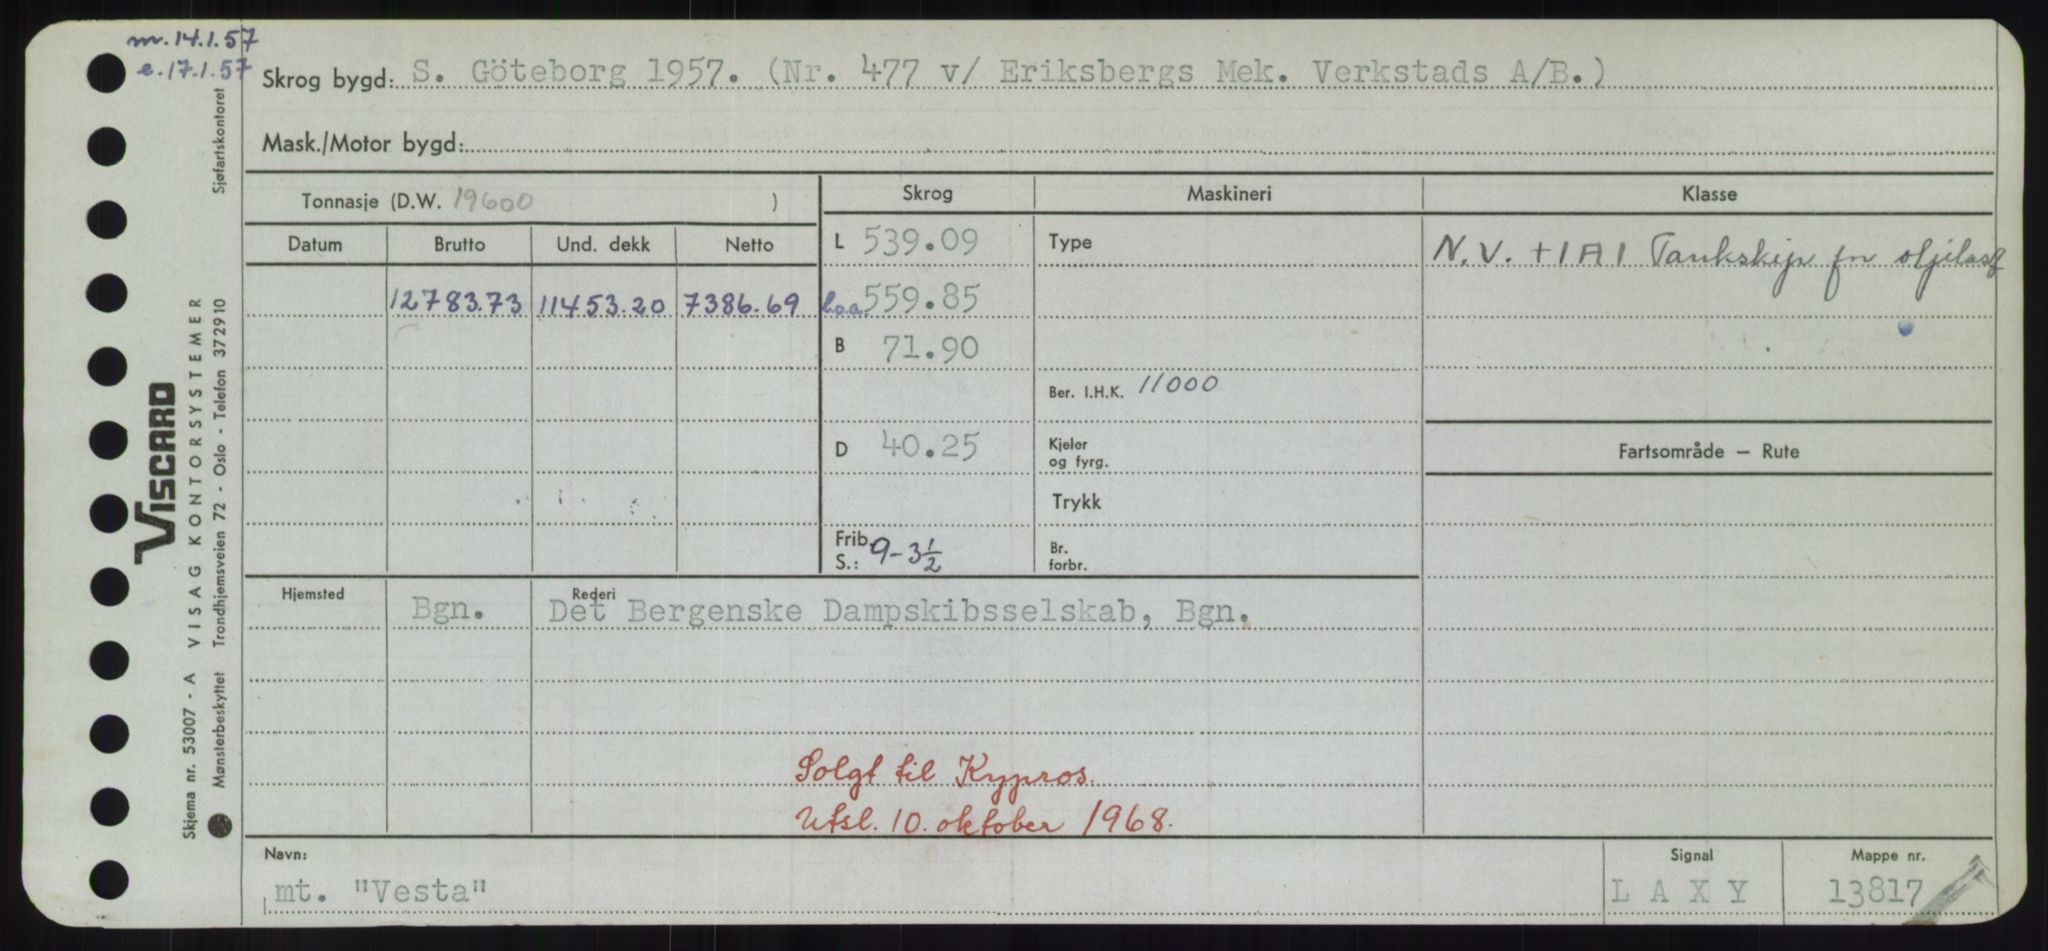 m. 14.1.57
e. 17.1.57
Skrog bygd: S. Göteborg 1957. (Nr. 477 v/ Eriksbergs Mek. Verkstads A/B.)
Mask./Motor bygd:
Tonnasje (D.W. 19600 )
Skrog Maskineri Klasse
Datum Brutto Und. dekk Netto
L 539.09 Type N.V. +1A1 Tankskip for oljelast
12783.73 11453.20 7386.69 l.o.a. 559.85
B 71.90
Ber. I.H.K. 11000
D 40.25 Kjeler og fyrg. Fartsområde – Rute
Trykk
Frib. S.: 9-3½ Br. forbr.
Hjemsted Bgn. Rederi Det Bergenske Dampskibsselskab, Bgn.
Solgt til Kypros.
Utsl. 10. oktober 1968.
Navn: Signal Mappe nr.
mt. "Vesta" LAXY 13817
VISCARD
Skjema nr. 53007 - A VISAG KONTORSYSTEMER
Mønsterbeskyttet Trondhjemsveien 72 - Oslo - Telefon 372910 Sjøfartskontoret